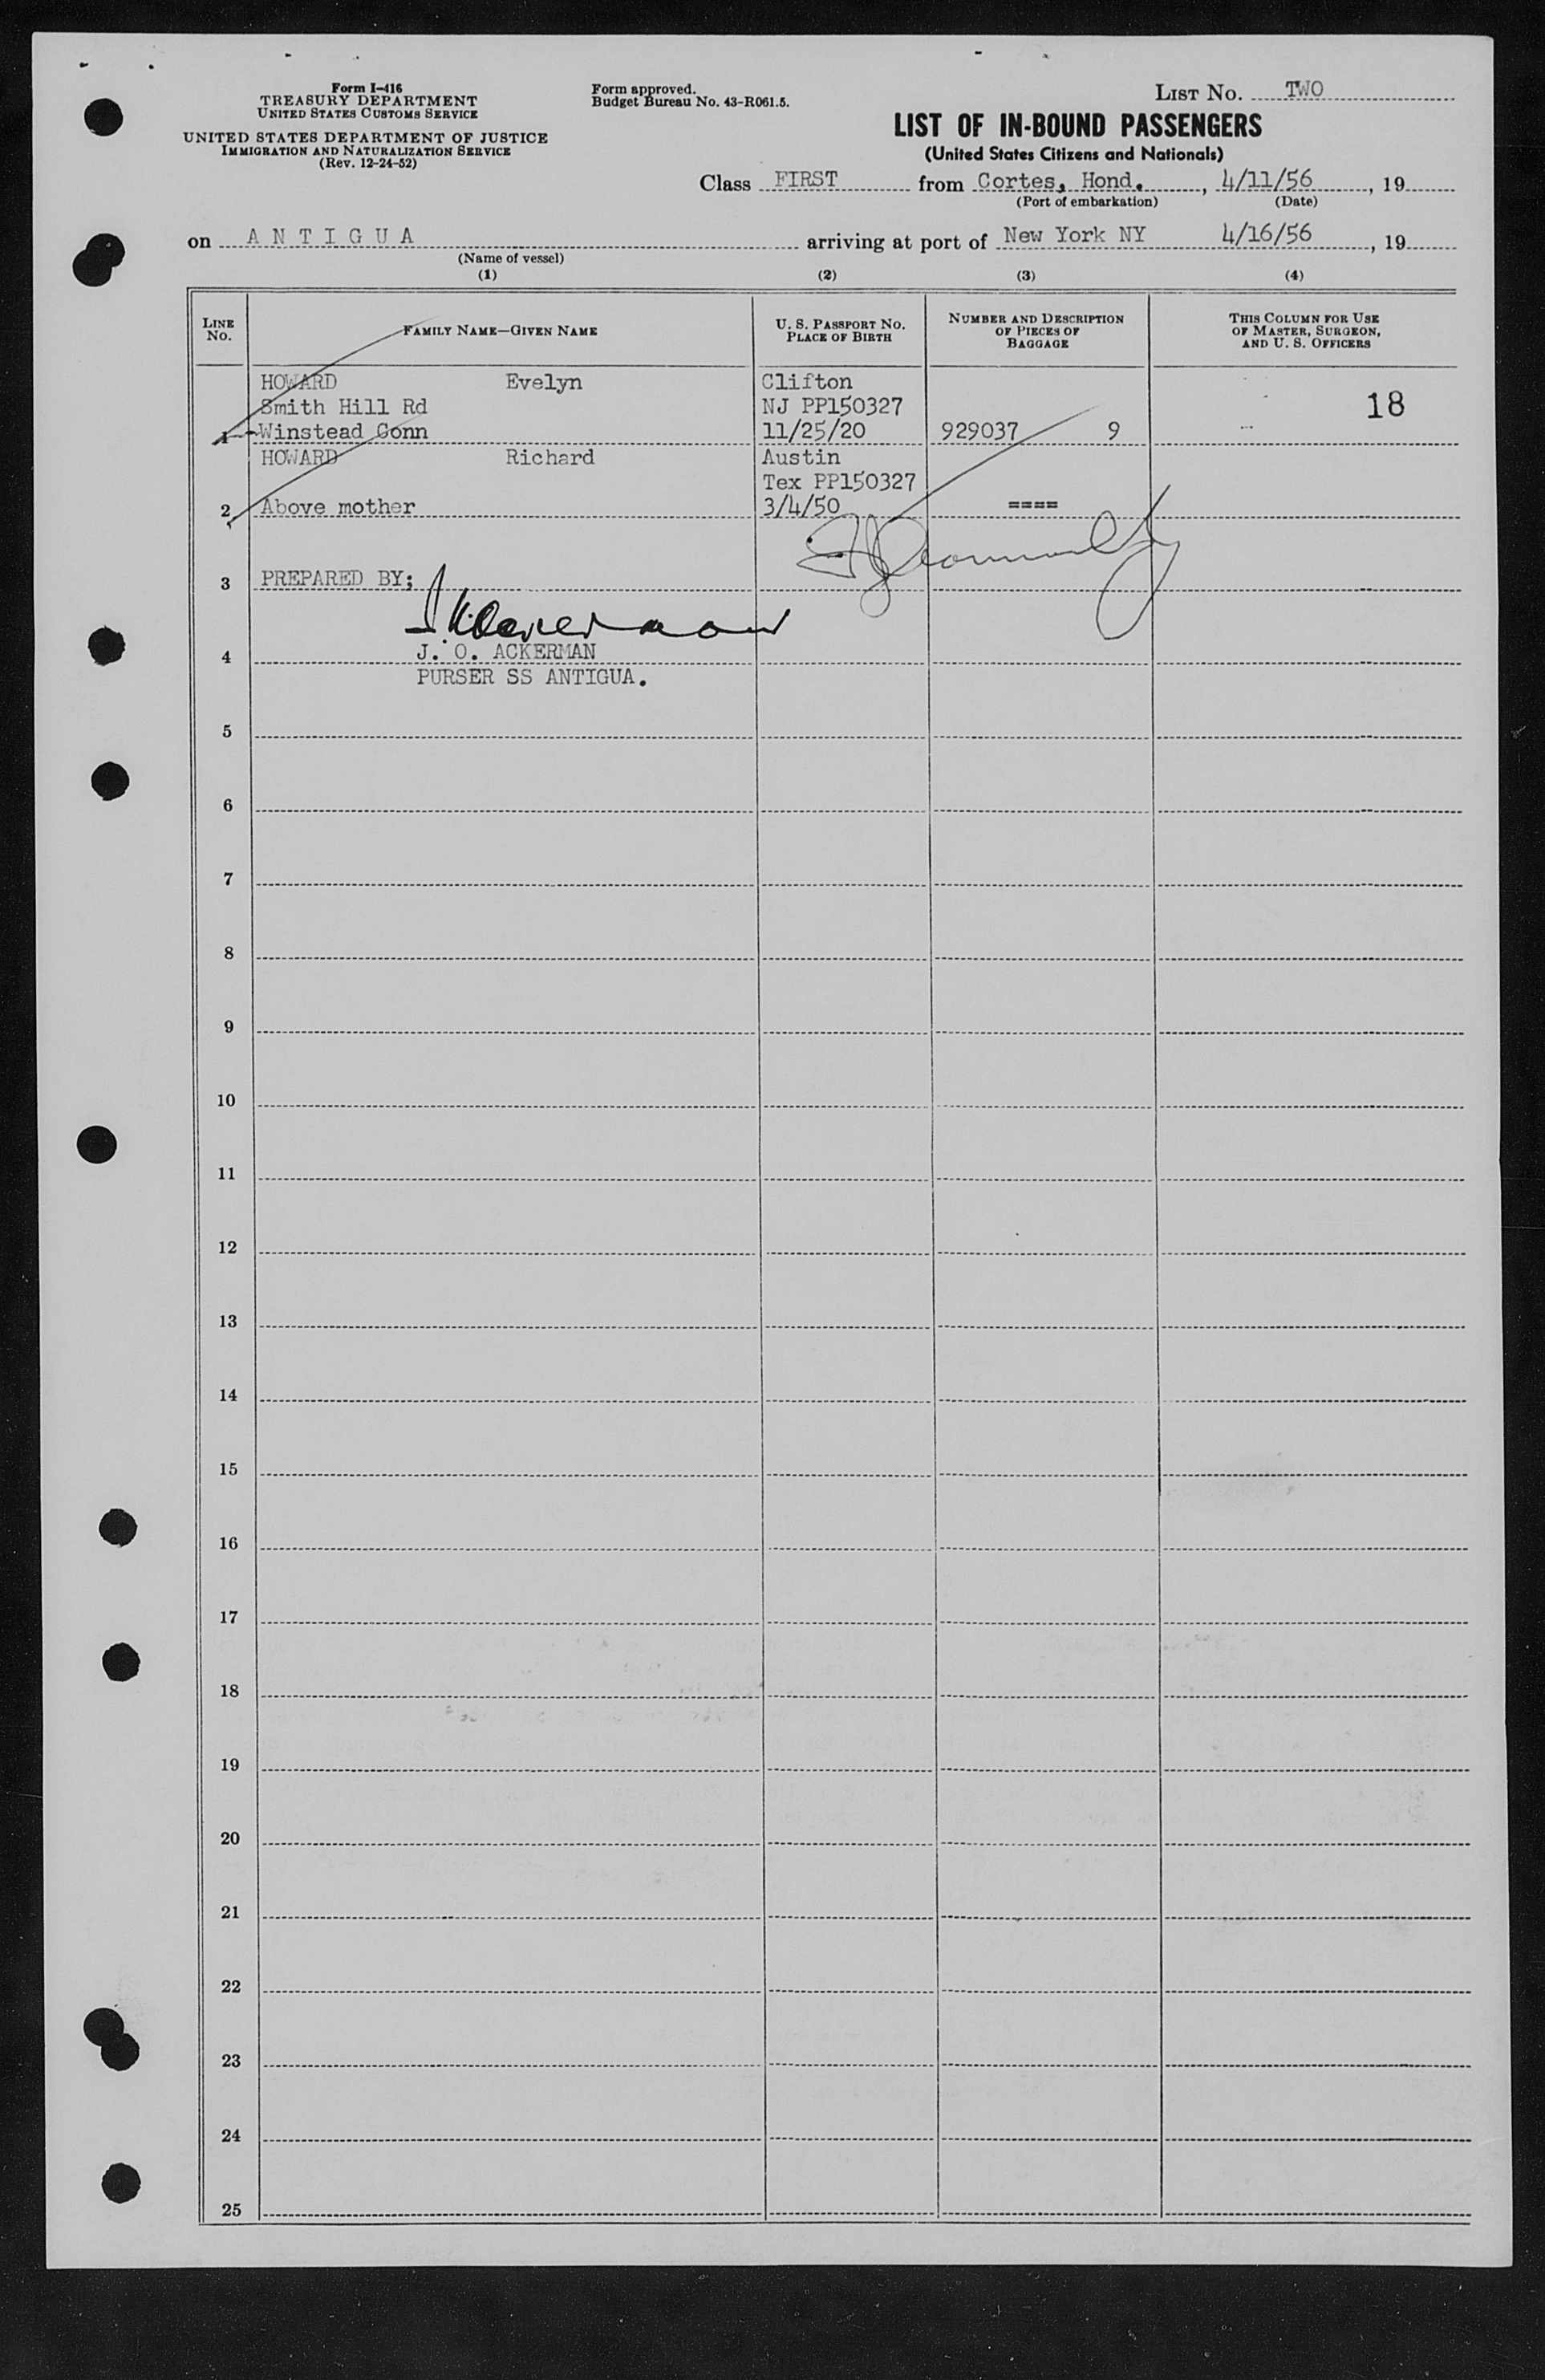 Form I-416
TREASURY DEPARTMENT
UNITED STATES CUSTOMS SERVICE
UNITED STATES DEPARTMENT OF JUSTICE
IMMIGRATION AND NATURALIZATION SERVICE
(Rev. 12-24-52)
Form approved.
Budget Bureau No. 43-R061.5.
LIST No. TWO
LIST OF IN-BOUND PASSENGERS
(United States Citizens and Nationals)
Class FIRST from Cortes, Hond. , 4/11/56 , 19
(Port of embarkation) (Date)
on A N T I G U A arriving at port of New York NY 4/16/56 , 19
(Name of vessel)
(1) (2) (3) (4)
LINE No.
FAMILY NAME—GIVEN NAME
U. S. PASSPORT NO.
PLACE OF BIRTH
NUMBER AND DESCRIPTION
OF PIECES OF
BAGGAGE
THIS COLUMN FOR USE
OF MASTER, SURGEON,
AND U. S. OFFICERS
HOWARD Evelyn Clifton
Smith Hill Rd NJ PP150327 18
1 Winstead Conn 11/25/20 929037 9
HOWARD Richard Austin
Tex PP150327
2 Above mother 3/4/50 ====
3 PREPARED BY;
4 J. O. ACKERMAN
PURSER SS ANTIGUA.
5
6
7
8
9
10
11
12
13
14
15
16
17
18
19
20
21
22
23
24
25